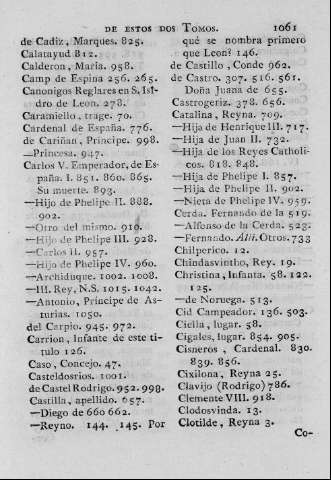 DE ESTOS DOS TOMOS. 1061
de Cadiz, Marques. 825.
Calatayud 812.
Calderon, Maria. 958.
Camp de Espina 256. 265.
Canonigos Reglares en S. Isi-
dro de Leon. 278.
Caramiello, trage. 70.
Cardenal de España. 776.
de Cariñan, Principe. 998.
—Princesa. 947.
Carlos V. Emperador, de Es-
paña. I. 851. 860. 865.
Su muerte. 893.
—Hijo de Phelipe II. 888.
902.
—Otro del mismo. 910.
—Hijo de Phelipe III. 928.
—Carlos II. 957.
—Hijo de Phelipe IV. 960.
—Archiduque. 1002. 1008.
—III. Rey, N.S. 1015. 1042.
—Antonio, Principe de As-
turias. 1050.
del Carpio. 945. 972.
Carrion, Infante de este ti-
tulo 126.
Caso, Concejo. 47.
Casteldosrios. 1001.
de Castel Rodrigo. 952. 998.
Castilla, apellido. 657.
—Diego de 660 662.
—Reyno. 144. 145. Por
qué se nombra primero
que Leon? 146.
de Castillo, Conde 962.
de Castro. 307. 516. 561.
Doña Juana de 655.
Castrogeriz. 378. 656.
Catalina, Reyna. 709.
—Hija de Henrique III. 717.
—Hija de Juan II. 732.
—Hija de los Reyes Catholi-
cos. 818. 848.
—Hija de Phelipe I. 857.
—Hija de Phelipe II. 902.
—Nieta de Phelipe IV. 959.
Cerda. Fernando de la 519.
—Alfonso de la Cerda. 523.
—Fernando. Alli. Otros. 733
Chilperico. 12.
Chindasvintho, Rey. 19.
Christina, Infanta. 58. 122.
125.
—de Noruega. 513.
Cid Campeador. 136. 503.
Ciella, lugar. 58.
Cigales, lugar. 854. 905.
Cisneros, Cardenal. 830.
839. 856.
Cixilona, Reyna 25.
Clavijo (Rodrigo) 786.
Clemente VIII. 918.
Clodosvinda. 13.
Clotilde, Reyna 3.
Co-